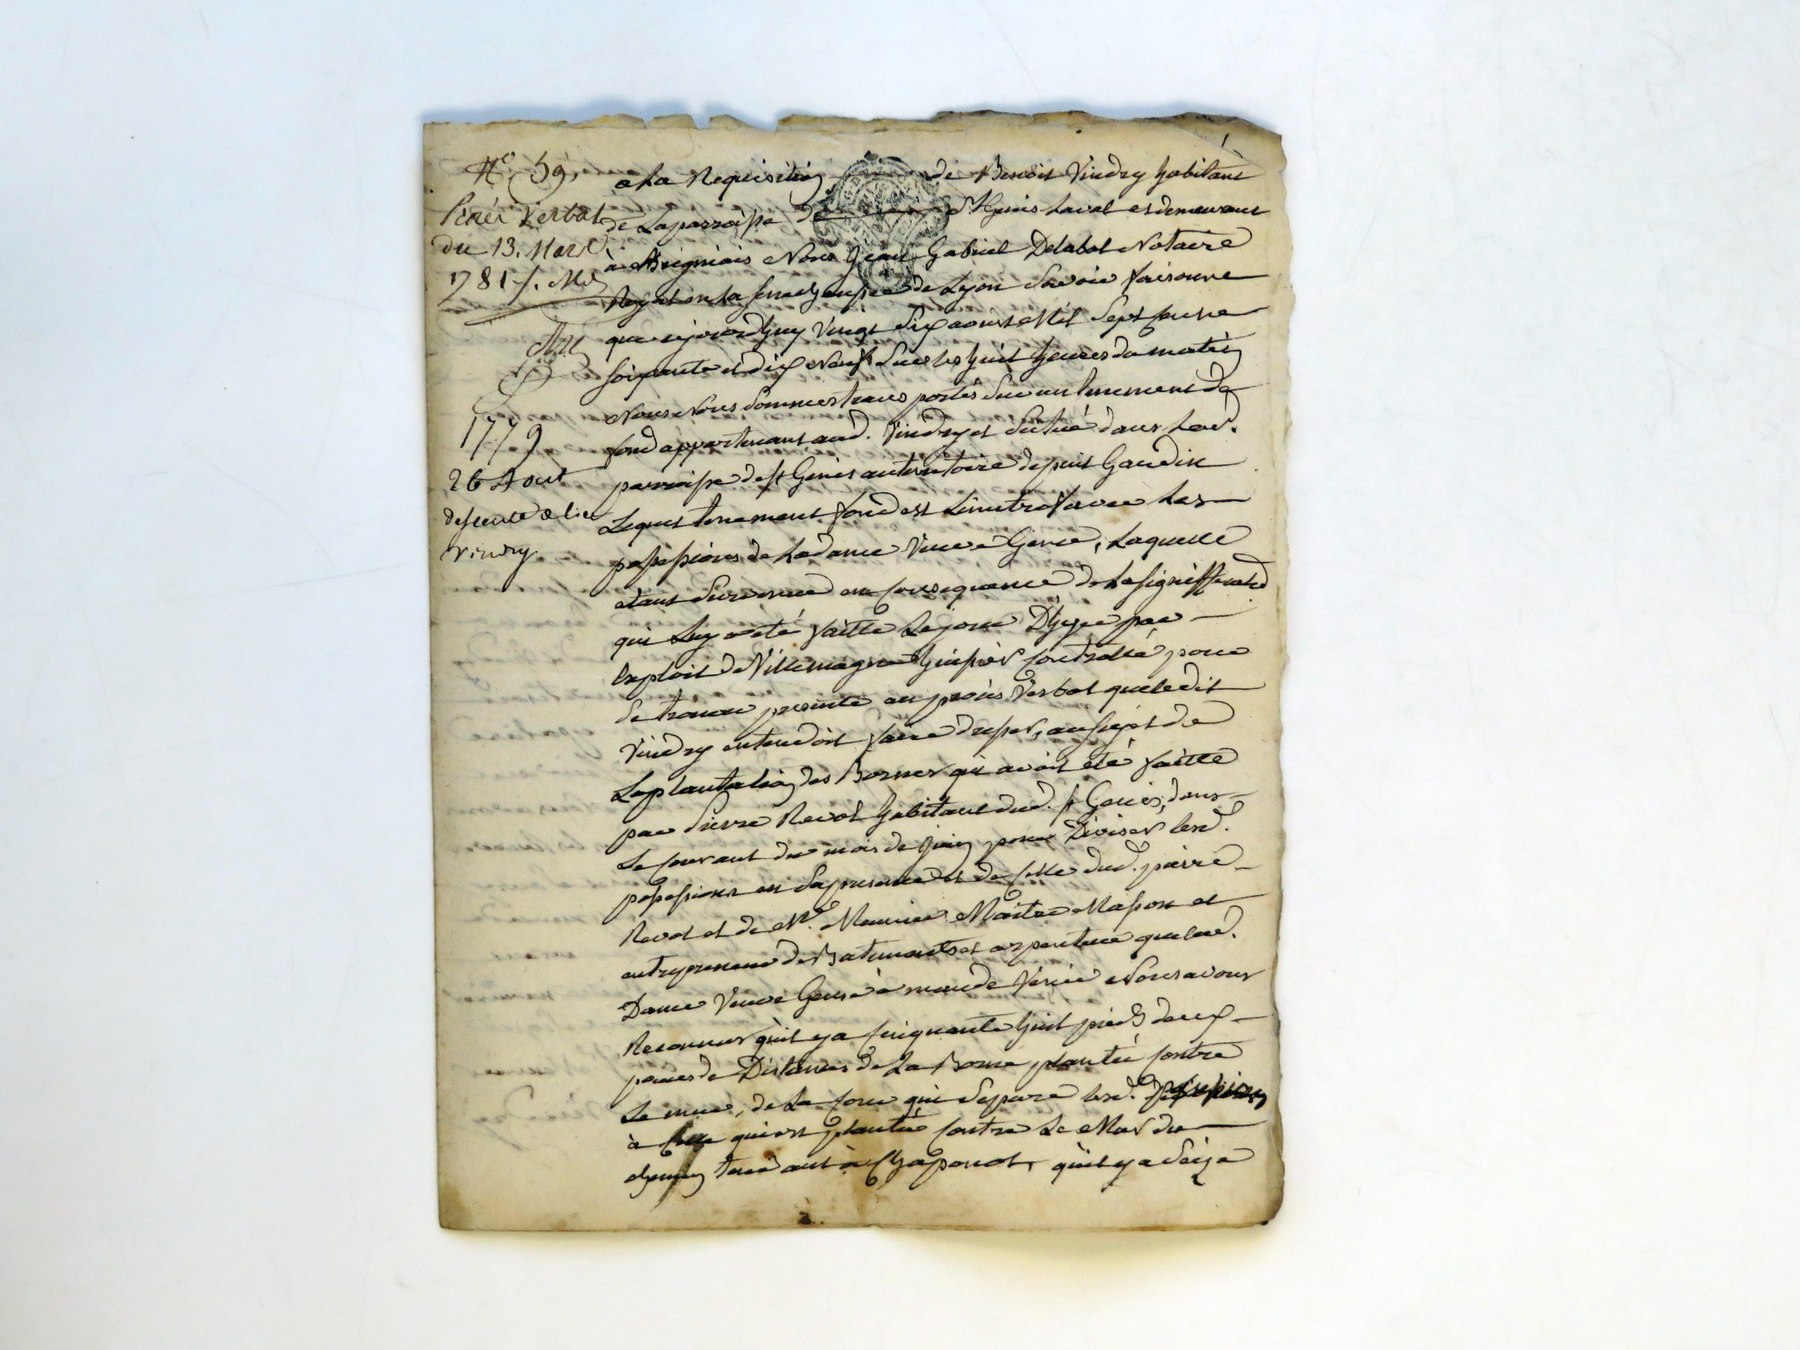 N.º 59,
Procès Verbal
du 13. Mars
1781
1779
26 Aout
descente &
Vindry
a La Requisition de Benoit Vindry habitant
de La parroisse de St Genis Laval et demeurant
à Brigniais Nous Jean Gabriel Delabat Notaire
Royal en La senechaussee de Lyon Savoir faisons
que cejourdhuy vingt six aoust Mil Sept Cent
soixante et dix neuf Sur les huit heures du matin
Nous Nous Sommes transportés Sur un tenement de
fond appartenant aud. Vindry et Scitué dans lad.
parroisse de St Genis au territoire de Gaudin
Lequel tenement fond est Limitrofe avec Les
possessions de La dame Veuve Genve, Laquelle
etant Survenue en Consequance de La
qui Luy a été faitte Le jour D'hyer par
Exploit de Villemagne huissier Controllé pour
Se trouver presente au procès Verbal que ledit
Vindry entendoit faire dresser, au sujet de
La plantation des Bornes qui avoit été faitte
par Pierre Revol habitant dud. St Genis, dans
Le Courant du mois de Juin pour Diviser lesd.
possessions en Sa presence et de Celle dud. pierre
Revol et de Me. Meunier Maitre Masson et
entrepreneur de Batiments et arpenteur que lad.
Dame Veuve Genve a mandé Venir Nous avons
Reconnus qu'il y a Cinquante huit pieds deux
pouces de Distances de La Borne plantée Contre
Le mur, de La Cour qui Separe lesd. possessions
à Celle qui est plantée Contre Le Mur du
chemin tendant à Chaponost, qu'il y a Seize